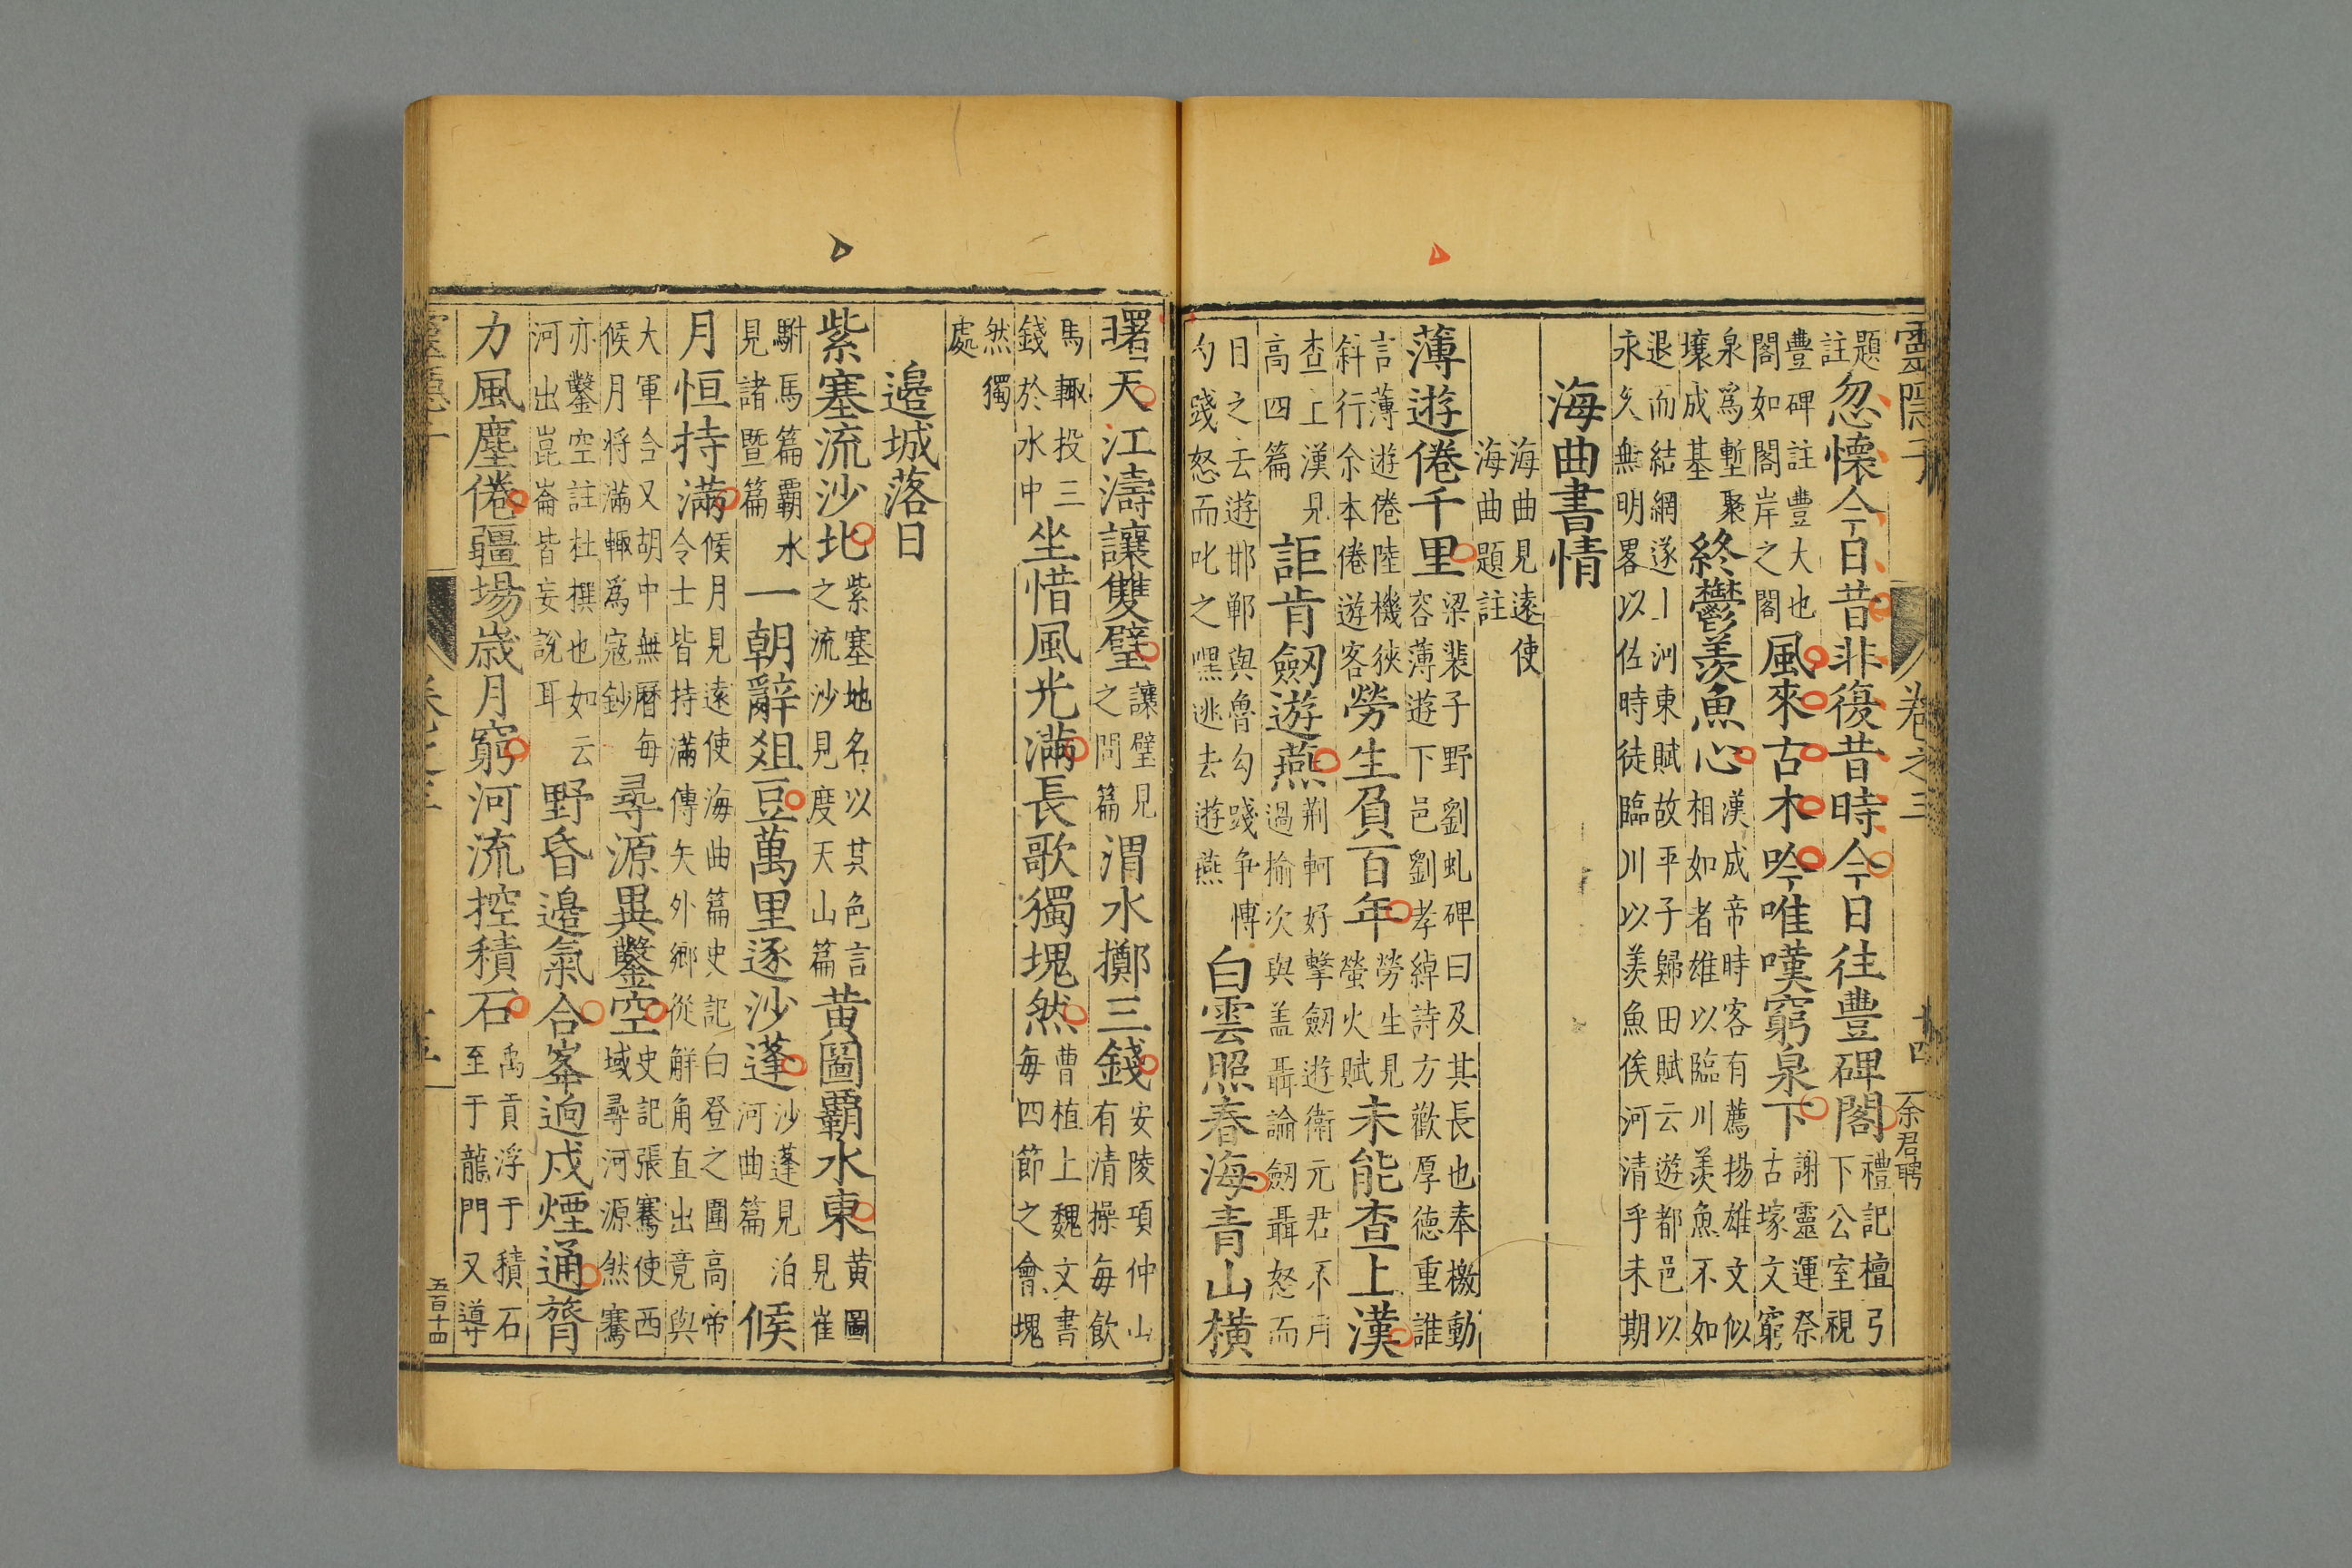 靈隱子
卷之三
十四
余君聘
題註
忽懷今日昔非復昔時今日往豐碑閣
禮記檀弓
下公室視
豐碑註豐大也
閣如閣岸之閣
風來古木吟唯嘆窮泉下
謝靈運祭
古塚文窮
泉爲塹聚
壤成基
終鬱羨魚心
漢成帝時客有薦揚雄文似
相如者雄以臨川羨魚不如
退而結網遂上河東賦故平子歸田賦云遊都邑以
永久無明畧以佐時徒臨川以羨魚俟河清乎未期
海曲書情
海曲見遠使
海曲題註
薄遊倦千里
梁裴子野劉虬碑曰及其長也奉檄動
容薄遊下邑劉孝綽詩方歡厚德重誰
言薄遊倦陸機狹
斜行余本倦遊客
勞生負百年
勞生見
螢火賦
未能查上漢
查上漢見
高四篇
詎肯劒遊燕
荆軻好擊劒遊衛元君不用
過榆次與盖聶論劒聶怒而
目之去遊邯鄲與魯勾踐争愽
勺踐怒而叱之嘿逃去遊燕
白雲照春海青山横
曙天江濤讓雙璧
讓璧見
之問篇
渭水擲三錢
安陵項仲山
有清操每飲
馬輙投三
錢於水中
坐惜風光滿長歌獨塊然
曹植上魏文書
每四節之會塊
然獨
處
邉城落日
紫塞流沙北
紫塞地名以其色言
之流沙見度天山篇
黄圖霸水東
黄圖
見崔
駙馬篇霸水
見諸暨篇
一朝辭爼豆萬里逐沙蓬
沙蓬見泊
河曲篇
候
月恒持滿
候月見遠使海曲篇史記白登之圍高帝
令士皆持滿傳矢外鄉從解角直出竟與
大軍合又胡中無曆毎
候月将滿輙爲寇鈔
尋源異鑿空
史記張騫使西
域尋河源然騫
亦鑿空註杜撰也如云
河出崑崙皆妄說耳
野昏邉氣合峯逈戍煙通膂
力風塵倦疆場歳月窮河流控積石
禹貢浮于積石
至于龍門又導
五百十四